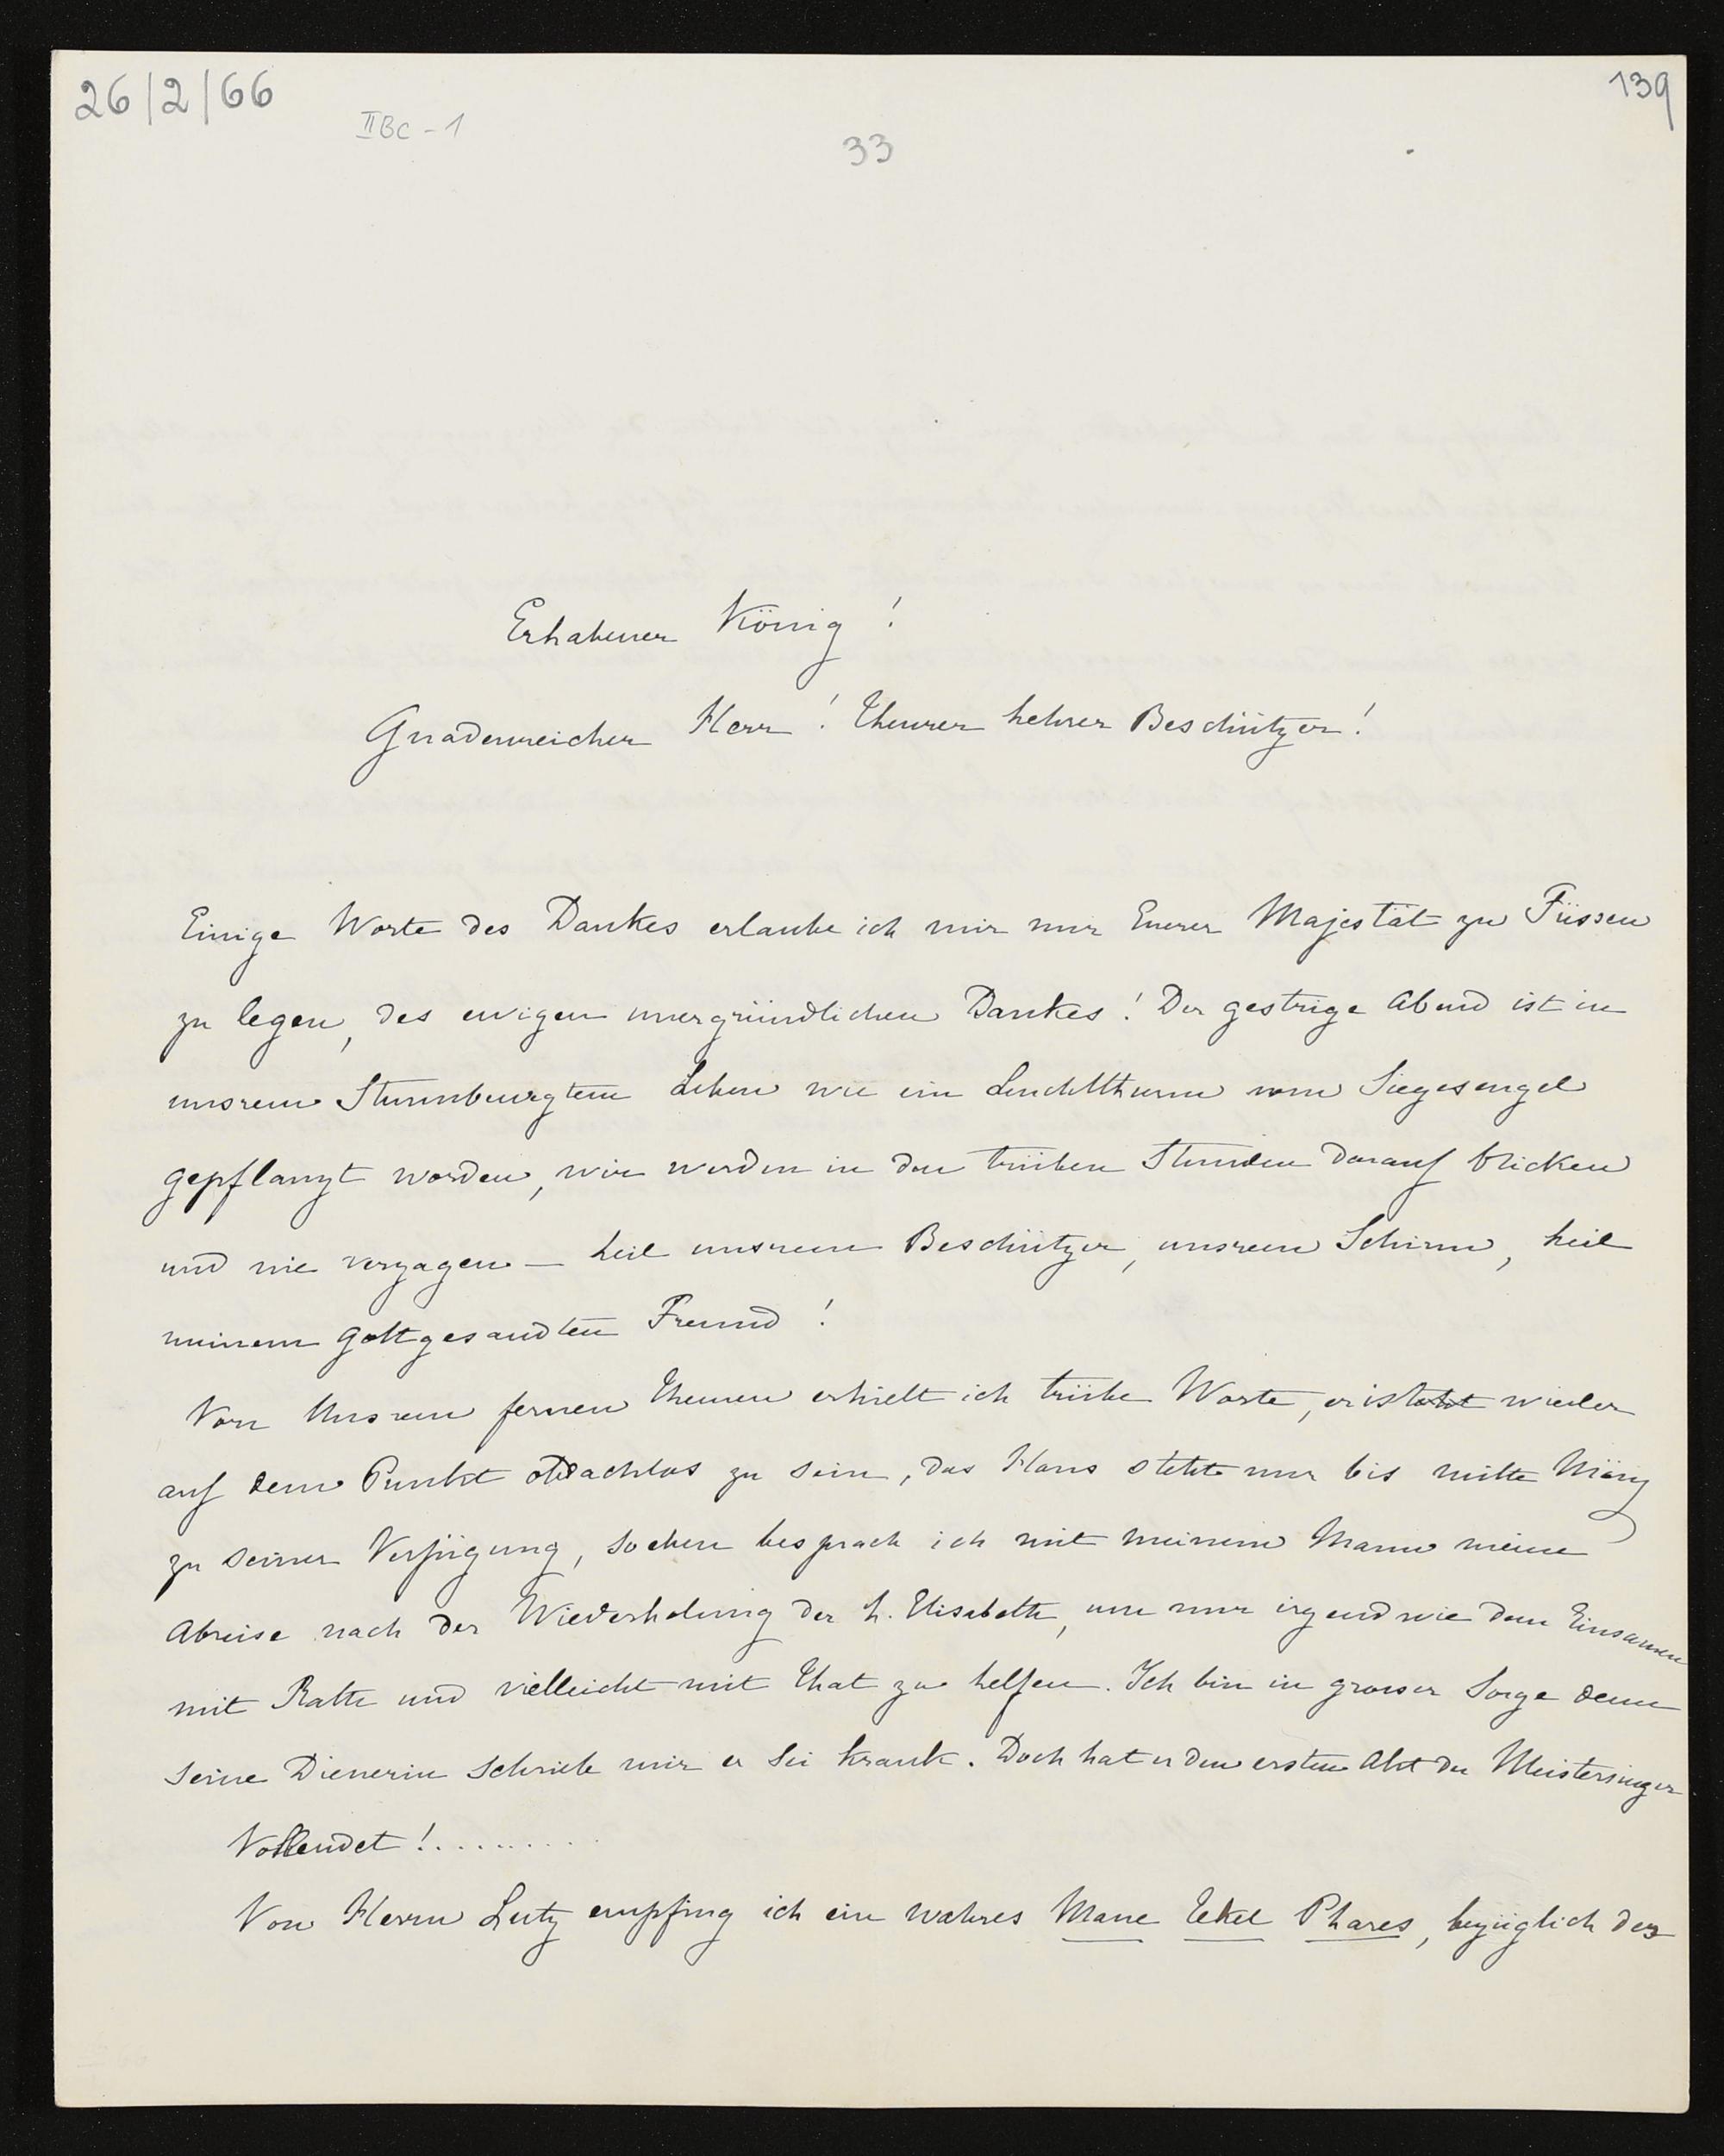 26/2/66
139
IIBc - 1
33
Erhabener König!
Gnadenreicher Herr! Theurer hehrer Beschützer!
Einige Worte des Dankes erlaube ich mir nur Euerer Majestät zu Füssen
zu legen, des ewigen unergründlichen Dankes! Der gestrige Abend ist in
unsrem Sturmbewegtem Leben wie ein Leuchtthurm vom Siegesengel
gepflanzt worden, wir werden in den trüben Stunden darauf blicken
und nie verzagen — heil unsrem Beschützer, unsrem Schirm, heil
meinem gottgesandten Freund!
Von Unsrem fernen Theuren erhielt ich trübe Worte, er ist wieder
auf dem Punkt obdachlos zu sein, das Haus steht nur bis mitte März
zu seiner Verfügung, soeben besprach ich mit meinem Manne meine
Abreise nach der Wiederholung der h. Elisabeth, um nur irgendwie dem Einsamen
mit Rath und vielleicht mit That zu helfen. Ich bin in grosser Sorge denn
seine Dienerin schrieb mir er sei krank. Doch hat er den ersten Akt der Meistersinger
Vollendet!.........
Von Herrn Lutz empfing ich ein wahres Mane Tekel Phares, bezüglich des